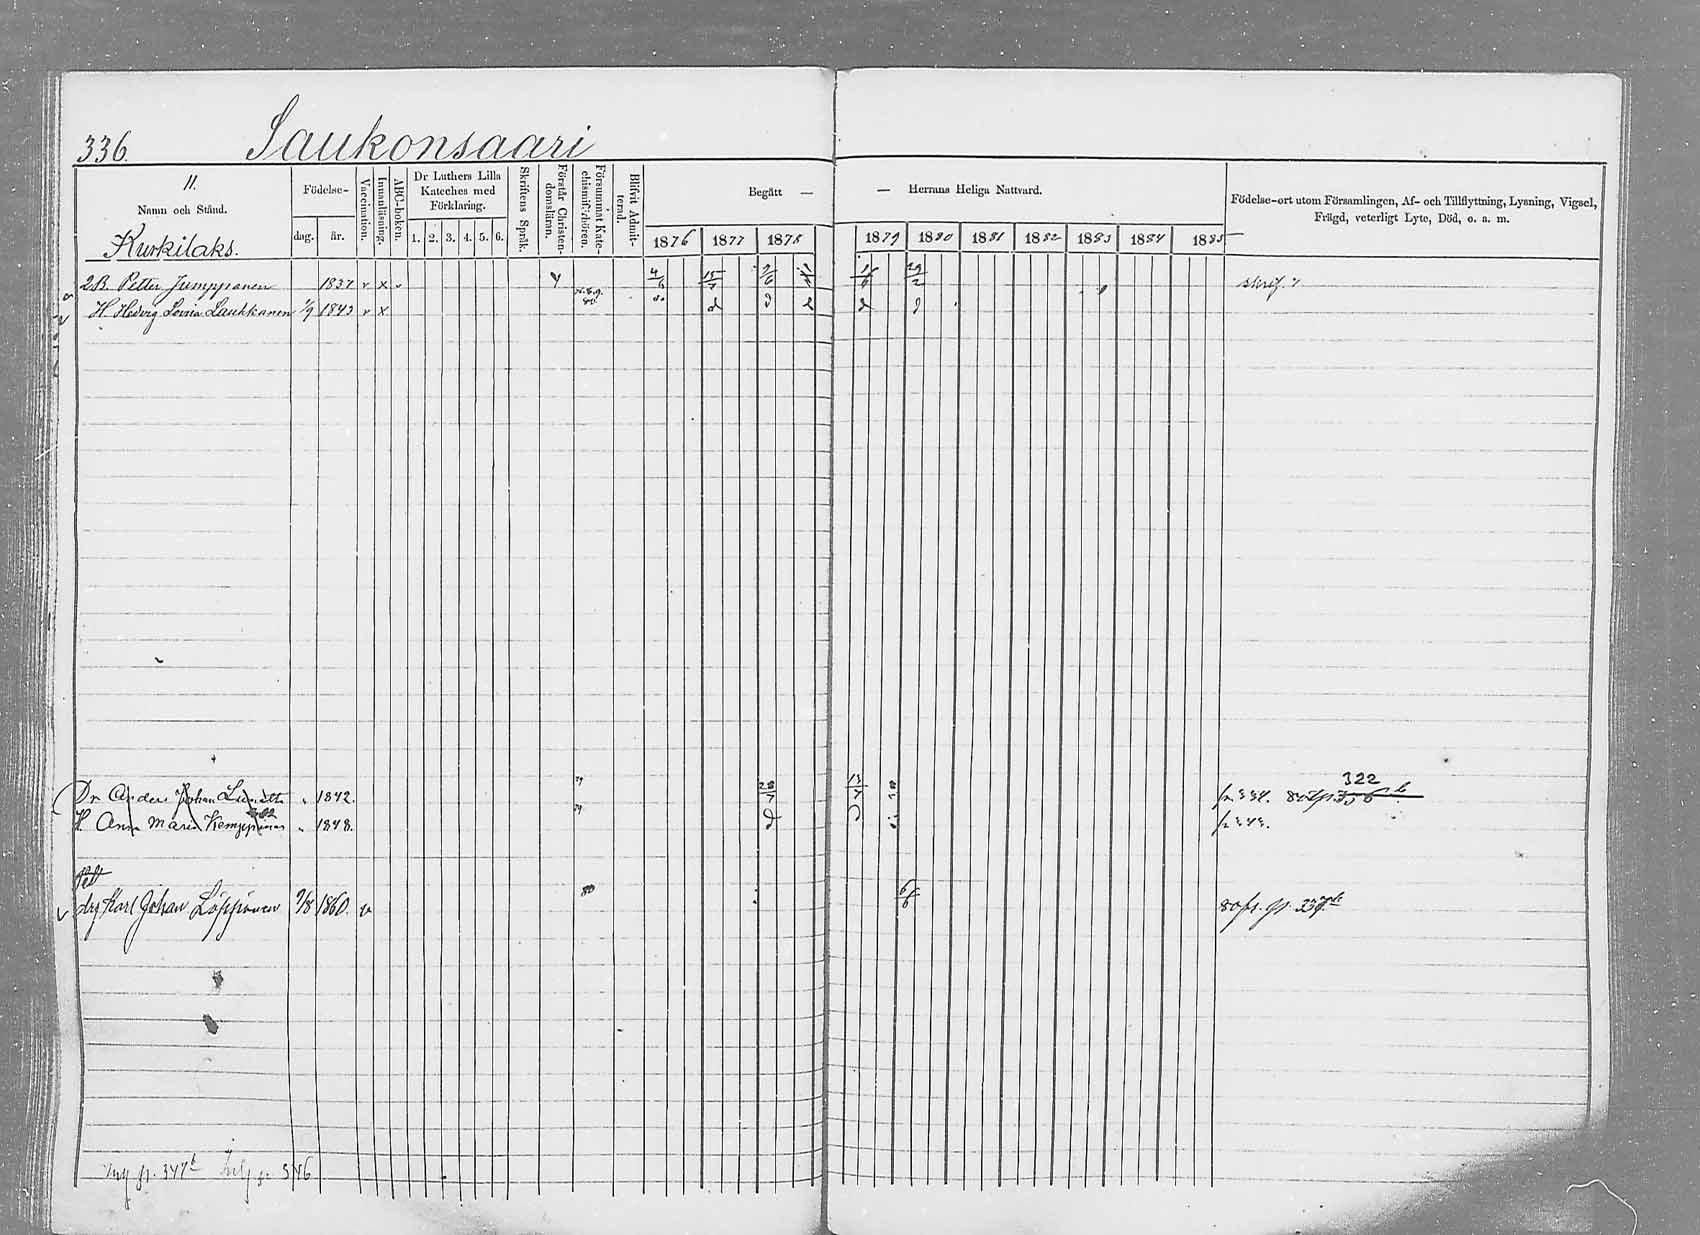 336. Saukonsaari
11.
Namn och Stånd.
Kurkilaks.
Födelse-
dag. år.
Vaccination.
Innanläsning.
ABC-boken.
Dr Luthers Lilla
Kateches med
Förklaring.
1. 2. 3. 4. 5. 6.
Skriftens Språk.
Förstår Christen-
domslären.
Försummat Kate-
chismiförhören.
Blifvit Admit-
terad.
Begått — — Herrans Heliga Nattvard.
1876 1877 1878 1879 1880 1881 1882 1883 1884 1885
Födelse-ort utom Församlingen, Af- och Tillflyttning, Lysning, Vigsel,
Frägd, veterligt Lyte, Död, o. a. m.
2B. Petter Jumpponen 1837 v x 4/6 15/7 9/6 29/2 skrif.
H. Hedvig Lovisa Laukkanen 1/9 1843 v x 2 2 2 2 2
322
Dr Anders Johan 1842. 28/7 13/7 fr 334.
H. Anna Maria Kemppinen 1848. fr 343.
drg Karl Johan Löppönen 9/8 1860. v 80 6/6 80 fr. 337
347b 346